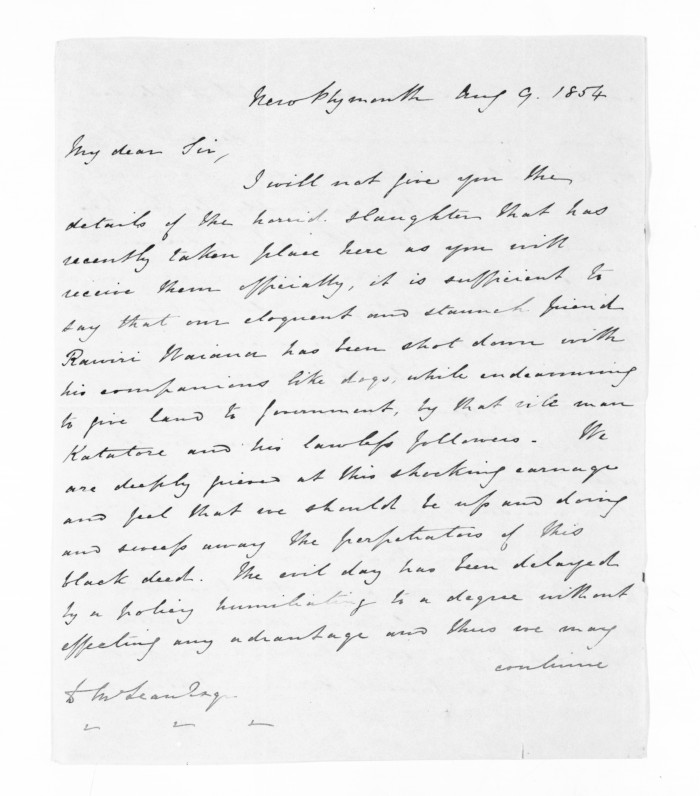 New Plymouth Aug 9. 1854
My dear Sir,
I will not give you the
details of the horrid slaughter that has
recently taken place here as you will
receive them officially, it is sufficient to
say that our eloquent and staunch friend
Rawiri Waiaua has been shot down with
his companions like dogs, while endeavouring
to give land to Government, by that vile man
Katatore and his lawless followers. We
are deeply grieved at this shocking carnage
and feel that we should be up and doing
and sweep away the perpetrators of this
black deed. The evil day has been delayed
by a policy humiliating to a degree without
effecting any advantage and thus we may
continue
D McLean Esqr.